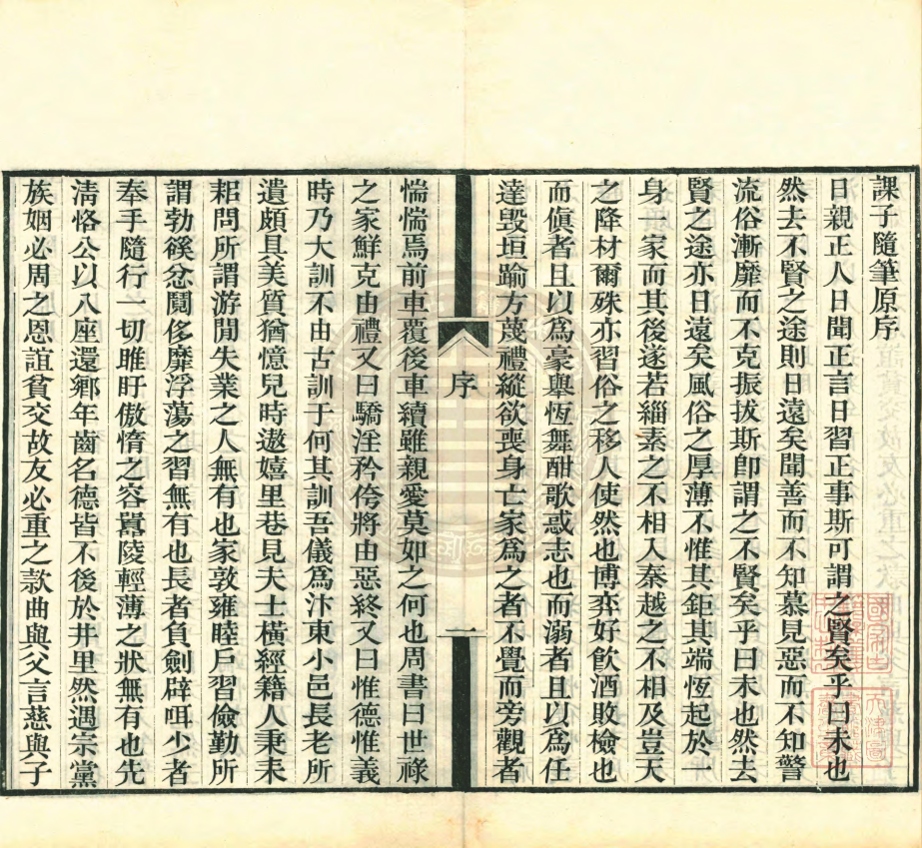 課子隨筆原序
日親正人日聞正言日習正事斯可謂之賢矣乎曰未也
然去不賢之途則日遠矣聞善而不知慕見惡而不知警
流俗漸靡而不克振拔斯卽謂之不賢矣乎曰未也然去
賢之途亦日遠矣風俗之厚薄不惟其鉅其端恆起於一
身一家而其後遂若緇素之不相入秦越之不相及豈天
之降材爾殊亦習俗之移人使然也博弈好飮酒敗檢也
而傎者且以爲豪舉恆舞酣歌惑志也而溺者且以爲任
達毀垣踰方蔑禮縱欲喪身亡家爲之者不覺而旁觀者
序
一
惴惴焉前車覆後車續雖親愛莫如之何也周書曰世祿
之家鮮克由禮又曰驕淫矜侉將由惡終又曰惟德惟義
時乃大訓不由古訓于何其訓吾儀爲汴東小邑長老所
遺頗具美質猶憶兒時遨嬉里巷見夫士橫經籍人秉耒
耜問所謂游閒失業之人無有也家敦雍睦戶習儉勤所
謂勃豀忿鬩侈靡浮蕩之習無有也長者負劍辟咡少者
奉手隨行一切睢盱傲惰之容囂陵輕薄之狀無有也先
淸恪公以八座還鄉年齒名德皆不後於井里然遇宗黨
族姻必周之恩誼貧交故友必重之款曲與父言慈與子